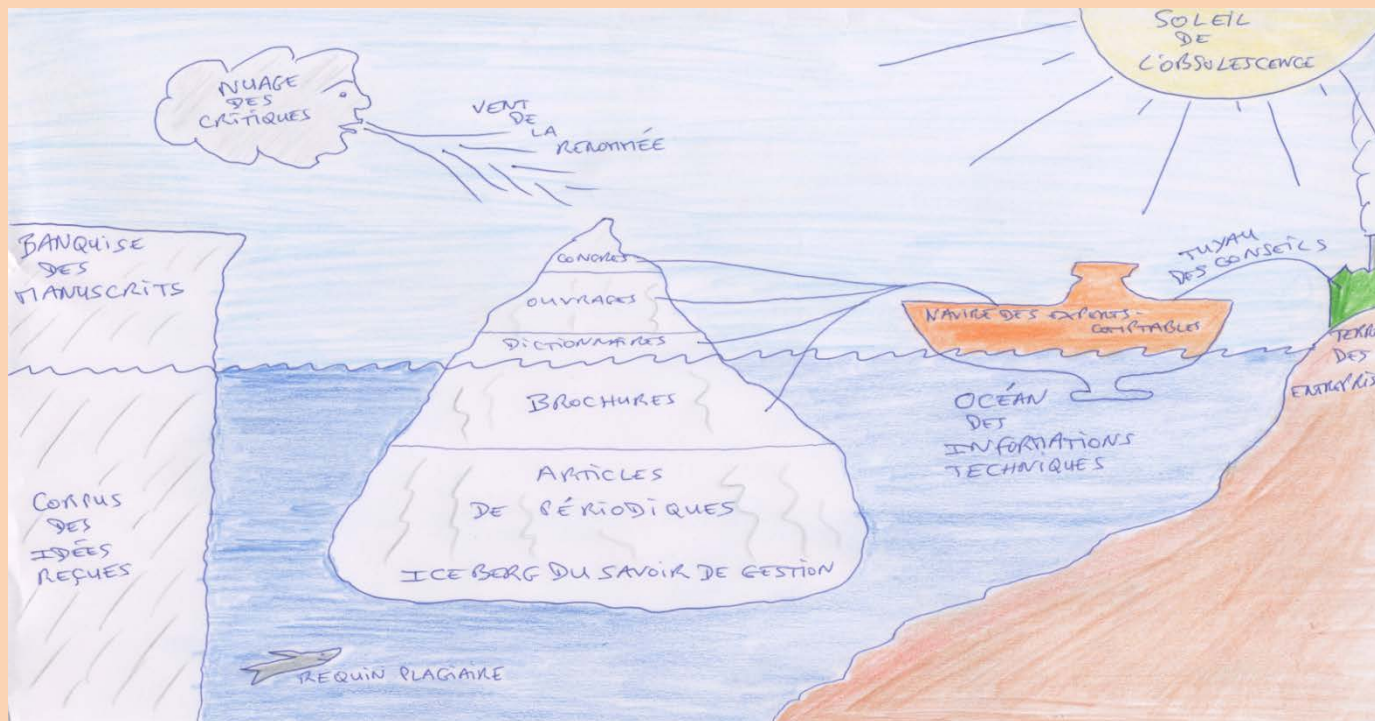 NUAGE
DES
CRITIQUES
VENT
DE
LA
RENOMMÉE
SOLEIL
DE
L'OBSULESCENCE
BANQUISE
DES
MANUSCRITS
CONGRES
OUVRAGES
DICTIONNAIRES
BROCHURES
ARTICLES
DE PÉRIODIQUES
ICEBERG DU SAVOIR DE GESTION
NAVIRE DES EXPERTS-
COMPTABLES
TUYAU
DES CONSEILS
TERRE
DES
ENTREPRIS
OCÉAN
DES
INFORMATIONS
TECHNIQUES
CORPUS
DES
IDÉES
REÇUES
REQUIN PLAGIAIRE